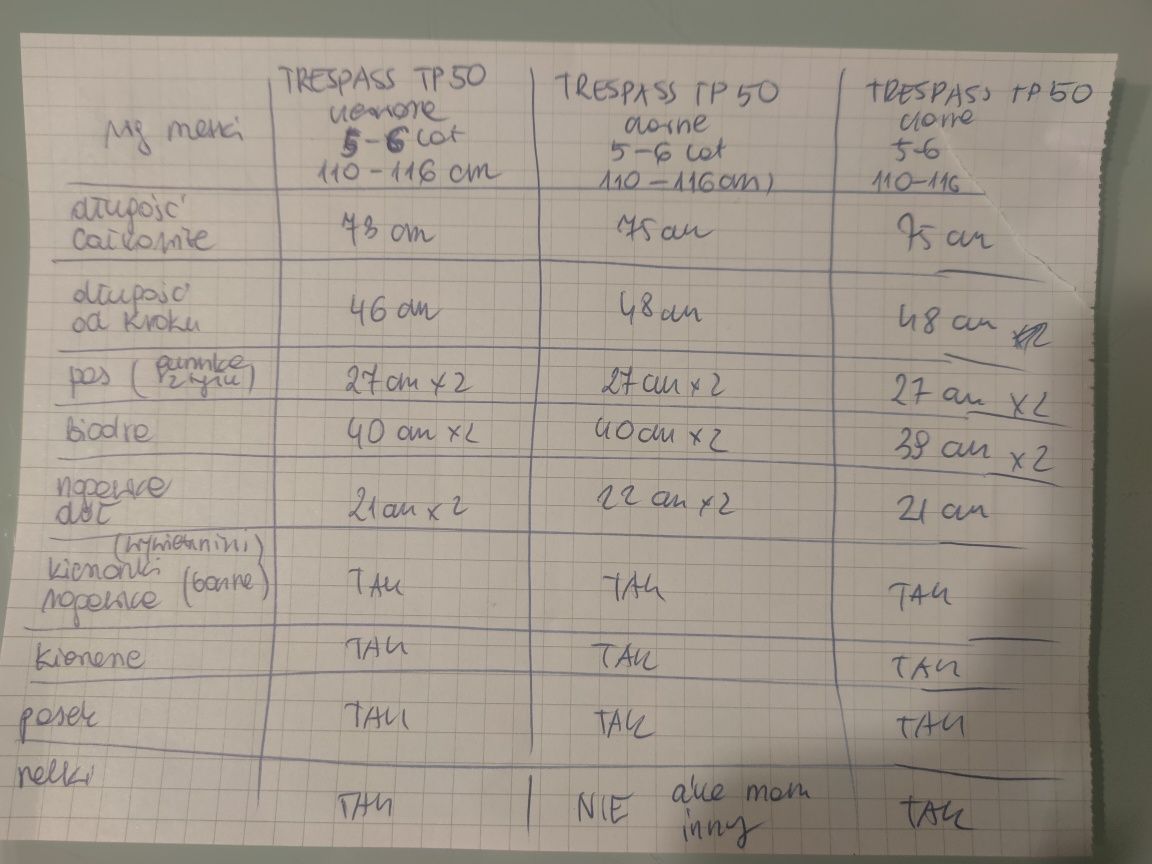 TRESPASS TP50 TRESPASS TP 50 TRESPASS TP 50
czarne czarne
wg metki 5-6 lat 5-6 lat 5-6
110-116 cm 110-116cm) 110-116
długość
całkowite 73 cm 75 cm 75 cm
długość
od kroku 46 cm 48 cm 48 cm
pas (gumka
z tyłu) 27 cm x2 27 cm x2 27 cm x2
biodra 40 cm x2 40 cm x2 39 cm x2
nogawka
dół 21 cm x2 22 cm x2 21 cm
kieszonki (boczne)
nogawce TAK TAK TAK
kieszenie TAK TAK TAK
pasek TAK TAK TAK
szelki
TAK NIE ale mam TAK
inny